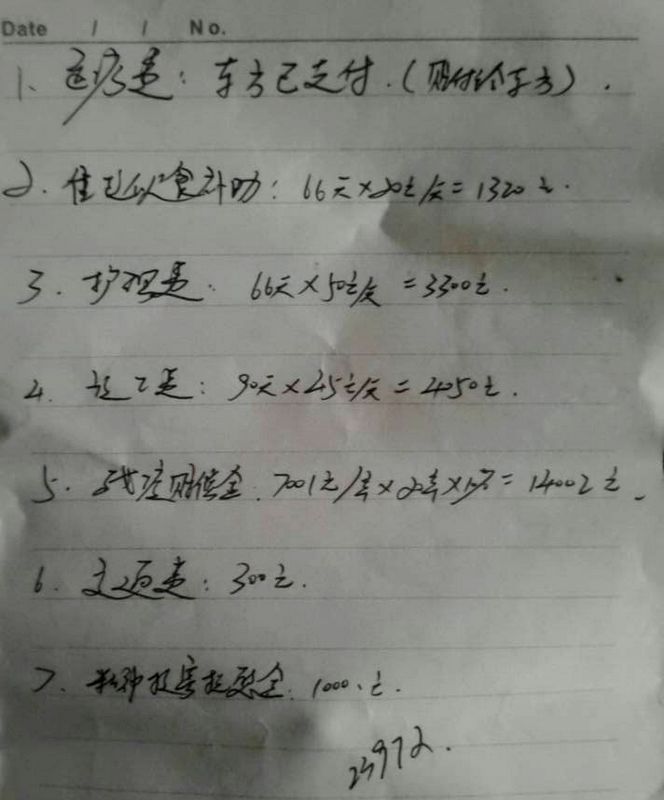 Date / / No.
1、医疗费：车方已支付.（赔付给车方）.
2. 住院伙食补助：66天×20元/天=1320元.
3. 护理费：66天×50元/天=3300元.
4. 误工费：90天×45元/天=4050元.
5. 残疾赔偿金：7001元/年×20年×10%=14002元.
6. 交通费：300元.
7. 精神损害抚慰金：1000.元.
23972.